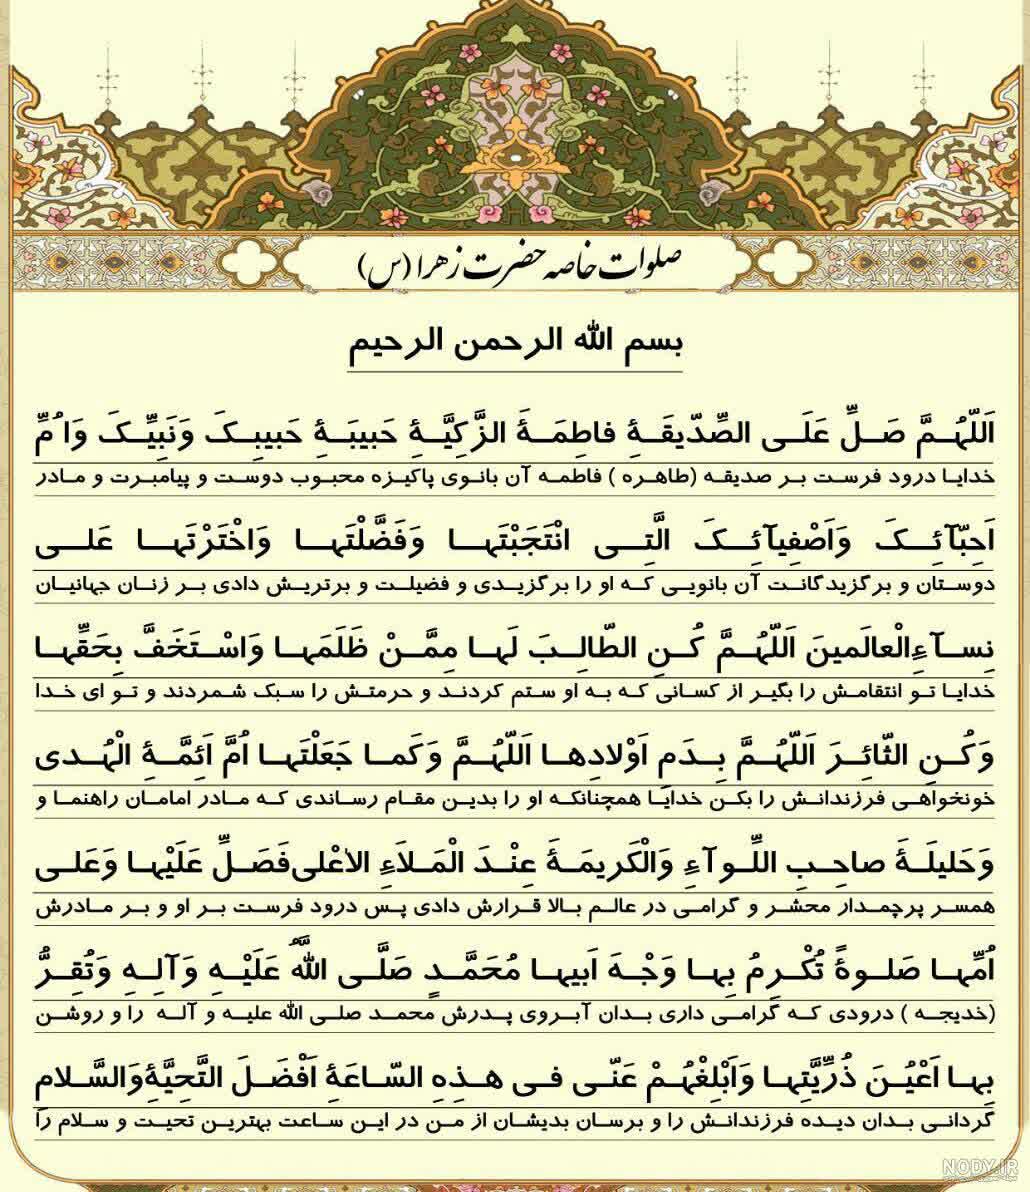 صلوات خاصه حضرت زهرا (س)
بسم الله الرحمن الرحیم
اَللّهُمَّ صَلِّ عَلَی الصِّدّیقَةِ فاطِمَةَ الزَّکِیَّةِ حَبیبَةِ حَبیبِکَ وَنَبِیِّکَ وَاُمِّ
خدایا درود فرست بر صدیقه (طاهره ) فاطمه آن بانوی پاکیزه محبوب دوست و پیامبرت و مادر
اَحِبّآئِکَ وَاَصْفِیآئِکَ الَّتِی انْتَجَبْتَها وَفَضَّلْتَها وَاخْتَرْتَها عَلی
دوستان و برگزیدگانت آن بانویی که او را برگزیدی و فضیلت و برتریش دادی بر زنان جهانیان
نِسآءِالْعالَمینَ اَللّهُمَّ کُنِ الطّالِبَ لَها مِمَّنْ ظَلَمَها وَاسْتَخَفَّ بِحَقِّها
خدایا تو انتقامش را بگیر از کسانی که به او ستم کردند و حرمتش را سبک شمردند و تو ای خدا
وَکُنِ الثّائِرَ اَللّهُمَّ بِدَمِ اَوْلادِها اَللّهُمَّ وَکَما جَعَلْتَها اُمَّ اَئِمَّةِ الْهُدی
خونخواهی فرزندانش را بکن خدایا همچنانکه او را بدین مقام رساندی که مادر امامان راهنما و
وَحَلیلَةَ صاحِبِ اللِّوآءِ وَالْکَریمَةَ عِنْدَ الْمَلاَءِ الاْعْلی‌فَصَلِّ عَلَیْها وَعَلی
همسر پرچمدار محشر و گرامی در عالم بالا قرارش دادی پس درود فرست بر او و بر مادرش
اُمِّها صَلوةً تُکْرِمُ بِها وَجْهَ اَبیها مُحَمَّدٍ صَلَّی اللَّهُ عَلَیْهِ وَآلِهِ وَتُقِرُّ
(خدیجه ) درودی که گرامی داری بدان آبروی پدرش محمد صلی الله علیه و آله را و روشن
بِها اَعْیُنَ ذُرِّیَّتِها وَاَبْلِغْهُمْ عَنّی فی هذِهِ السّاعَةِ اَفْضَلَ التَّحِیَّةِوَالسَّلامِ
گردانی بدان دیده فرزندانش را و برسان بدیشان از من در این ساعت بهترین تحیت و سلام را
NODY.IR